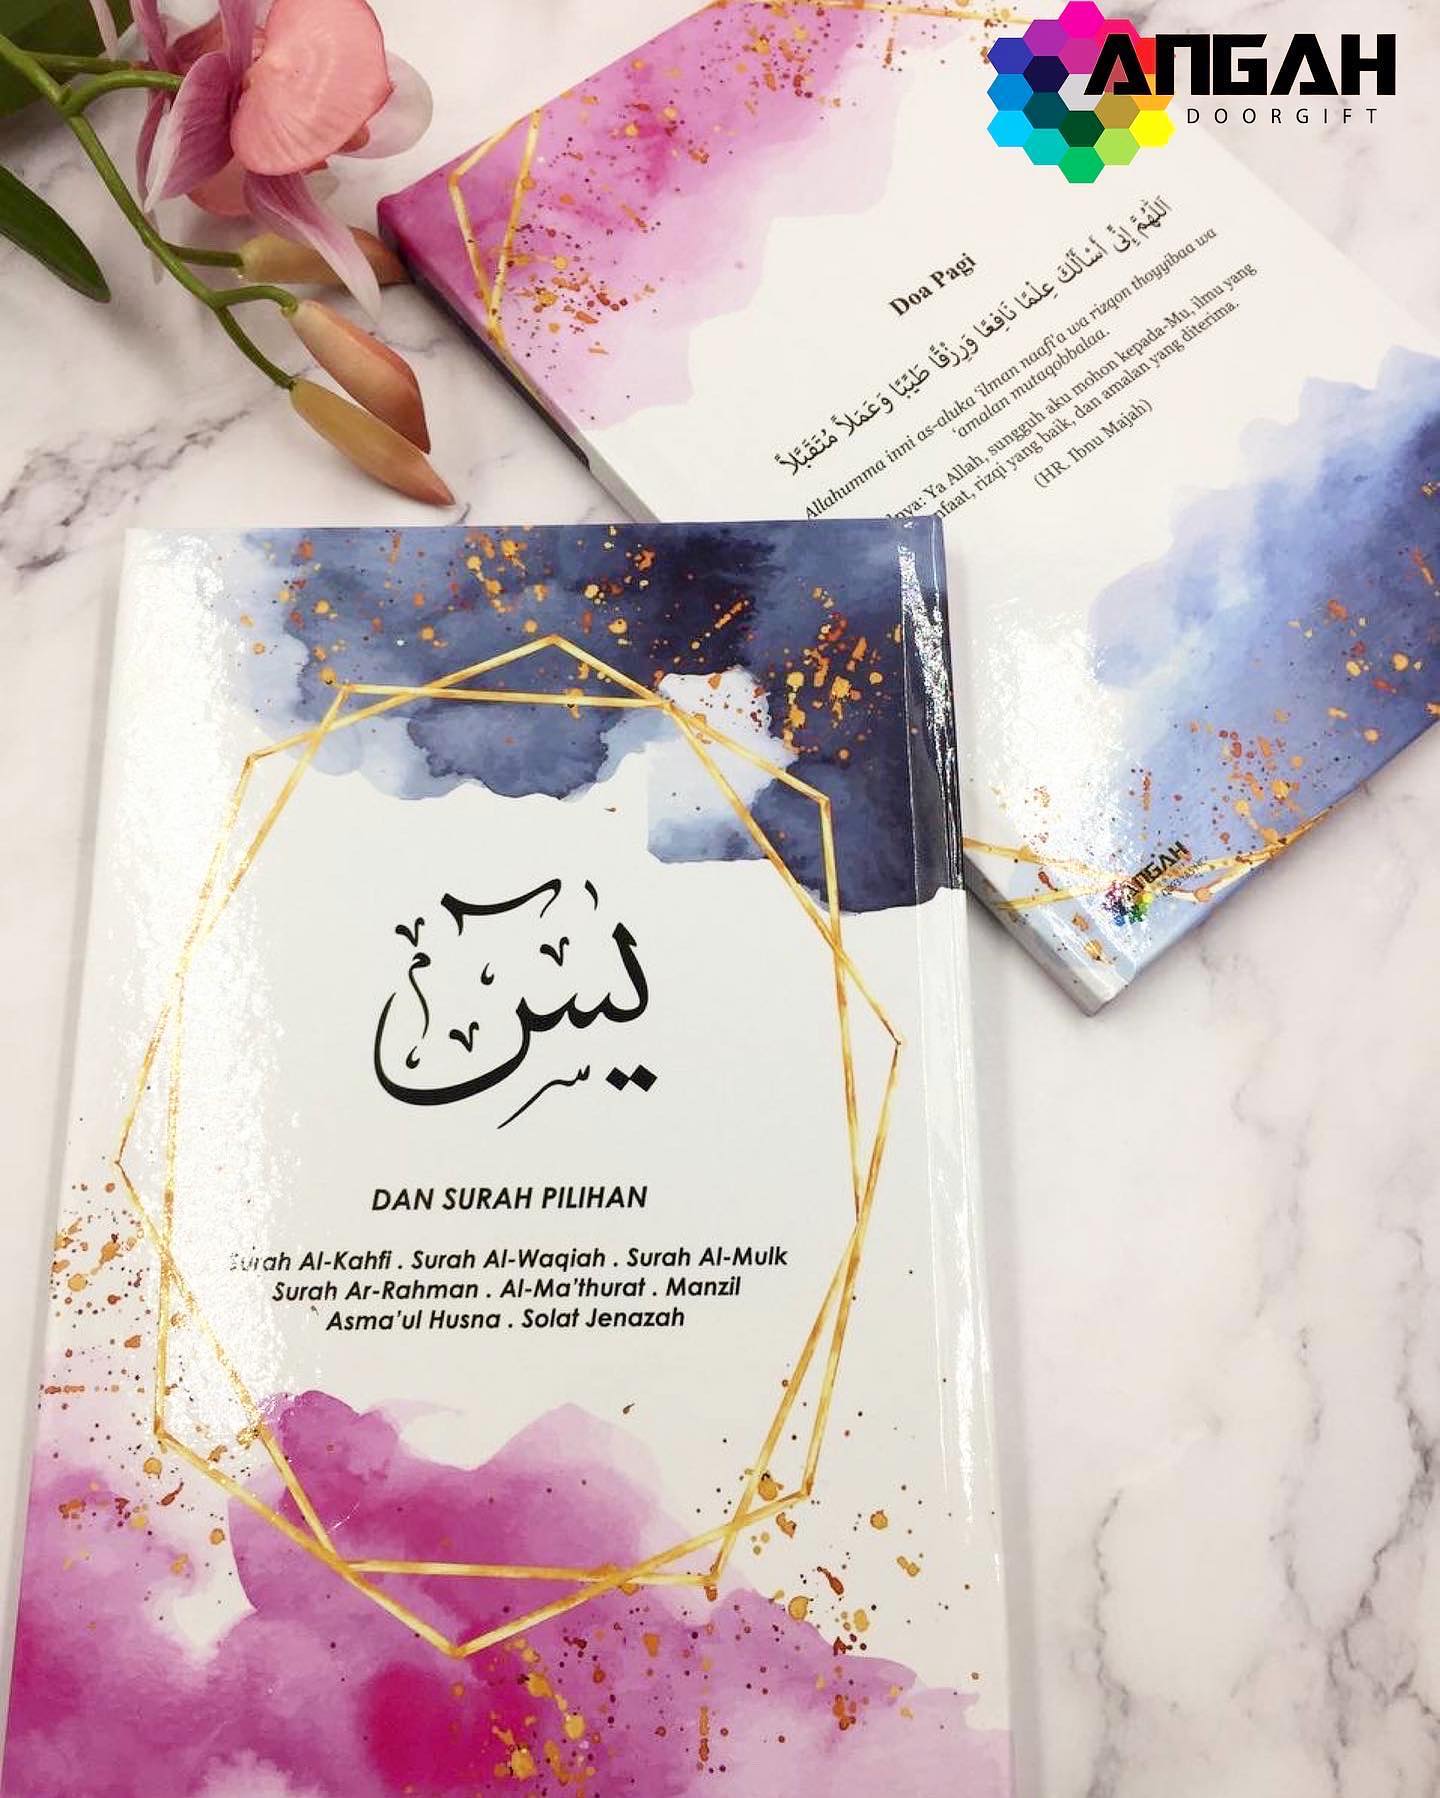 ANGAH
DOORGIFT
Doa Pagi
اَللّٰهُمَّ إِنِّى أَسْأَلُكَ عِلْمًا نَافِعًا وَرِزْقًا طَيِّبًا وَعَمَلاً مُتَقَبَّلاً
Allahumma inni as-aluka 'ilman naafi'a wa rizqon thoyyibaa wa
'amalan mutaqobbalaa.
Ya Allah, sungguh aku mohon kepada-Mu, ilmu yang
rizqi yang baik, dan amalan yang diterima.
(HR. Ibnu Majah)
ANGAH
يسٓ
DAN SURAH PILIHAN
Surah Al-Kahfi . Surah Al-Waqiah . Surah Al-Mulk
Surah Ar-Rahman . Al-Ma'thurat . Manzil
Asma'ul Husna . Solat Jenazah